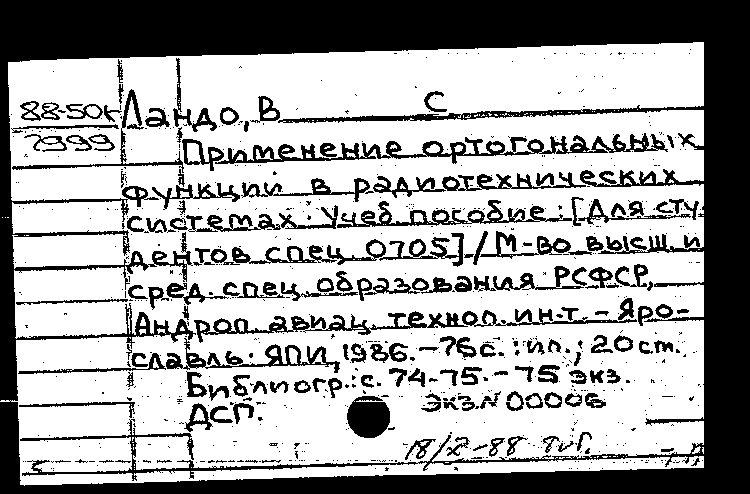 88-50к Ландо, В С
7999
Применение ортогональных
функций в радиотехнических
системах: Учеб пособие: [Для сту-
дентов спец. 0705] / М-во высш и
сред. спец. образования РСФСР,
Андроп. авиац. технол. ин-т. - Яро-
славль: ЯПИ, 1986. - 76 с.: ил.; 20 см.
Библиогр.: с. 74-75. - 75 экз.
ДСП. Экз.N 00006
18/X-88